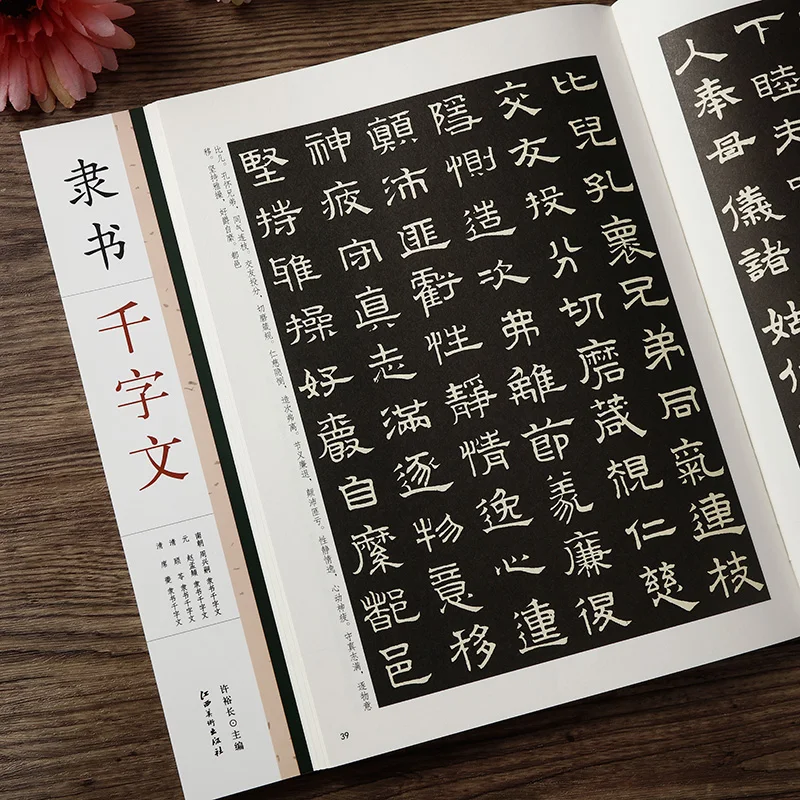 隶书
千字文
南朝 周兴嗣 隶书千字文
元 赵孟頫 隶书千字文
清 顾苓 隶书千字文
清 席夔 隶书千字文
许裕长⊙主编
江西美术出版社
下睦夫
人奉母儀諸姑
比兒孔褱兄弟同氣連枝
交友投分切磨箴規仁慈
隱惻造次弗離節義廉退
顛沛匪虧性靜情逸心動
神疲守真志滿逐物意移
堅持雅操好爵自縻都邑
比儿。孔怀兄弟，同气连枝。交友投分，切磨箴规。仁慈隐恻，造次弗离。节义廉退，颠沛匪亏。性静情逸，心动神疲。守真志满，逐物意
移。坚持雅操，好爵自縻。都邑
39